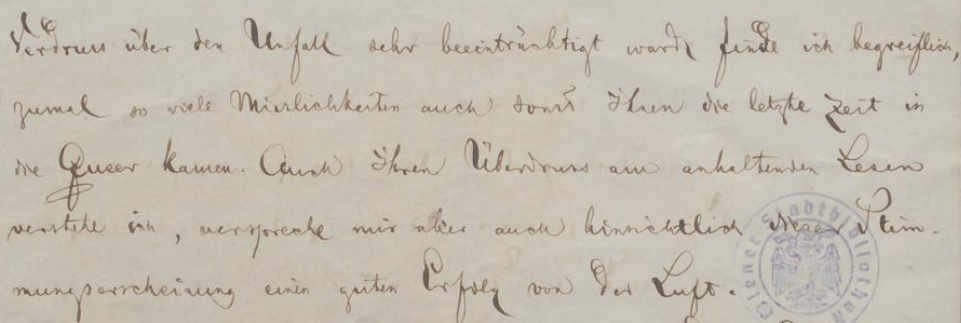 Verdruss über den Unfall sehr beeinträchtigt ward, finde ich begreiflich,
zumal so viele Misslichkeiten auch sonst Ihnen die letzte Zeit in
die Queer kamen. Auch Ihren Überdruss am anhaltenden Lesen
verstehe ich, verspreche mir aber auch hinsichtlich dieser Stim-
mungserscheinung einen guten Erfolg von der Luft.
Wiener Stadtbibliothek